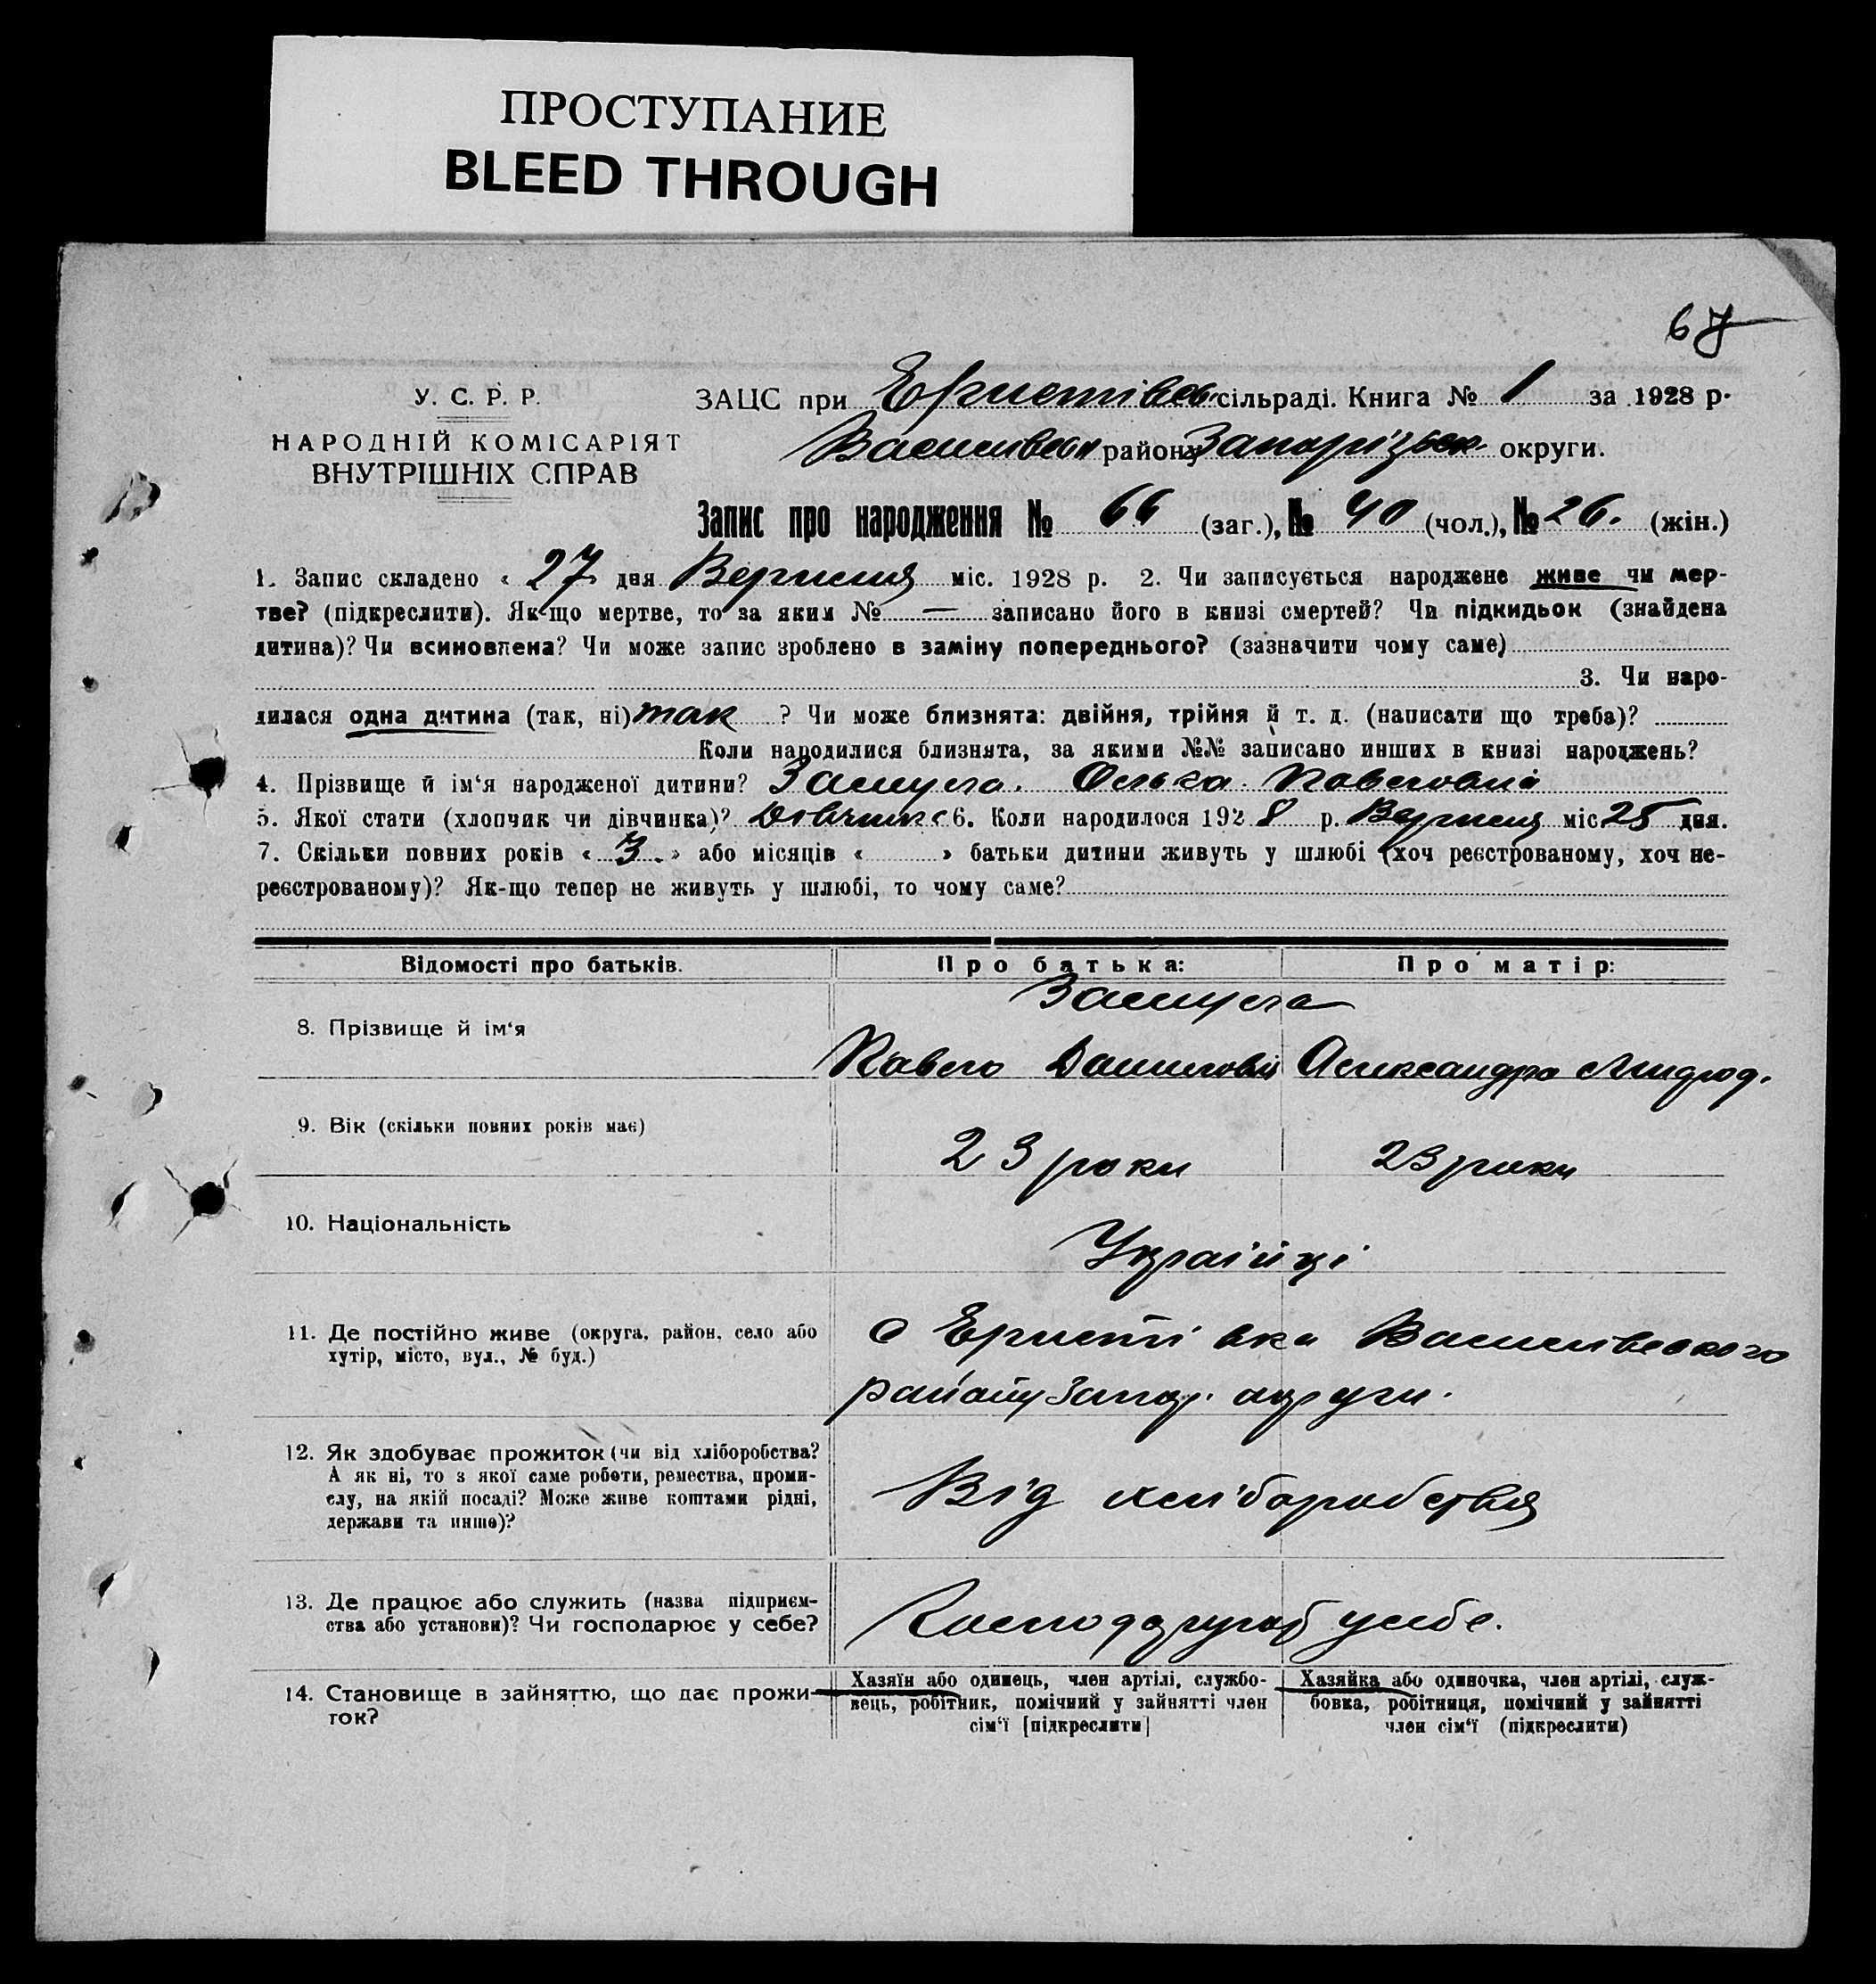 ПРОСТУПАНИЕ
BLEED THROUGH
67
У. С. Р. Р.
НАРОДНІЙ КОМІСАРІЯТ
ВНУТРІШНІХ СПРАВ
ЗАЦС при Еристівськ. сільраді. Книга № 1 за 1928 р.
Василівськ району Запорізьк. округи.
Запис про народження № 66 (заг.), № 40 (чол.), № 26. (жін.)
1. Запис складено « 27 дня Вересня міс. 1928 р. 2. Чи записується народжене живе чи мер-
тве? (підкреслити). Як-що мертве, то за яким № — записано його в книзі смертей? Чи підкидьок (знайдена
дитина)? Чи всиновлена? Чи може запис зроблено в заміну попереднього? (зазначити чому саме)
3. Чи наро-
дилася одна дитина (так, ні) так ? Чи може близнята: двійня, трійня й т. д. (написати що треба)?
Коли народилися близнята, за якими №№ записано инших в книзі народжень?
4. Прізвище й ім‘я народженої дитини? Ольга Павловна
5. Якої стати (хлопчик чи дівчинка)? Дівчинк 6. Коли народилося 1928 р. Вересня міс 25 дня.
7. Скільки повних років « 3 » або місяців « » батьки дитини живуть у шлюбі (хоч реєстрованому, хоч не-
реєстрованому)? Як-що тепер не живуть у шлюбі, то чому саме?
Відомості про батьків. Про батька: Про матір:
8. Прізвище й ім‘я
Павло Данилович Александра
9. Вік (скільки повних років має)
23 роки 23 роки
10. Національність
Українці
11. Де постійно живе (округа, район, село або
хутір, місто, вул., № буд.)
с Еристівка Василівського
району Запор. округи.
12. Як здобуває прожиток (чи від хліборобства?
А як ні, то з якої саме роботи, ремества, проми-
слу, на якій посаді? Може живе коштами рідні,
держави та инше)?
Від хліборобства
13. Де працює або служить (назва підприєм-
ства або установи)? Чи господарює у себе?
у себе.
14. Становище в зайняттю, що дає прожи-
ток?
Хазяїн або одинець, член артілі, службо-
вець, робітник, помічний у зайнятті член
сім‘ї [підкреслити]
Хазяйка або одиночка, член артілі, служ-
бовка, робітниця, помічний у зайнятті
член сім‘ї (підкреслити)